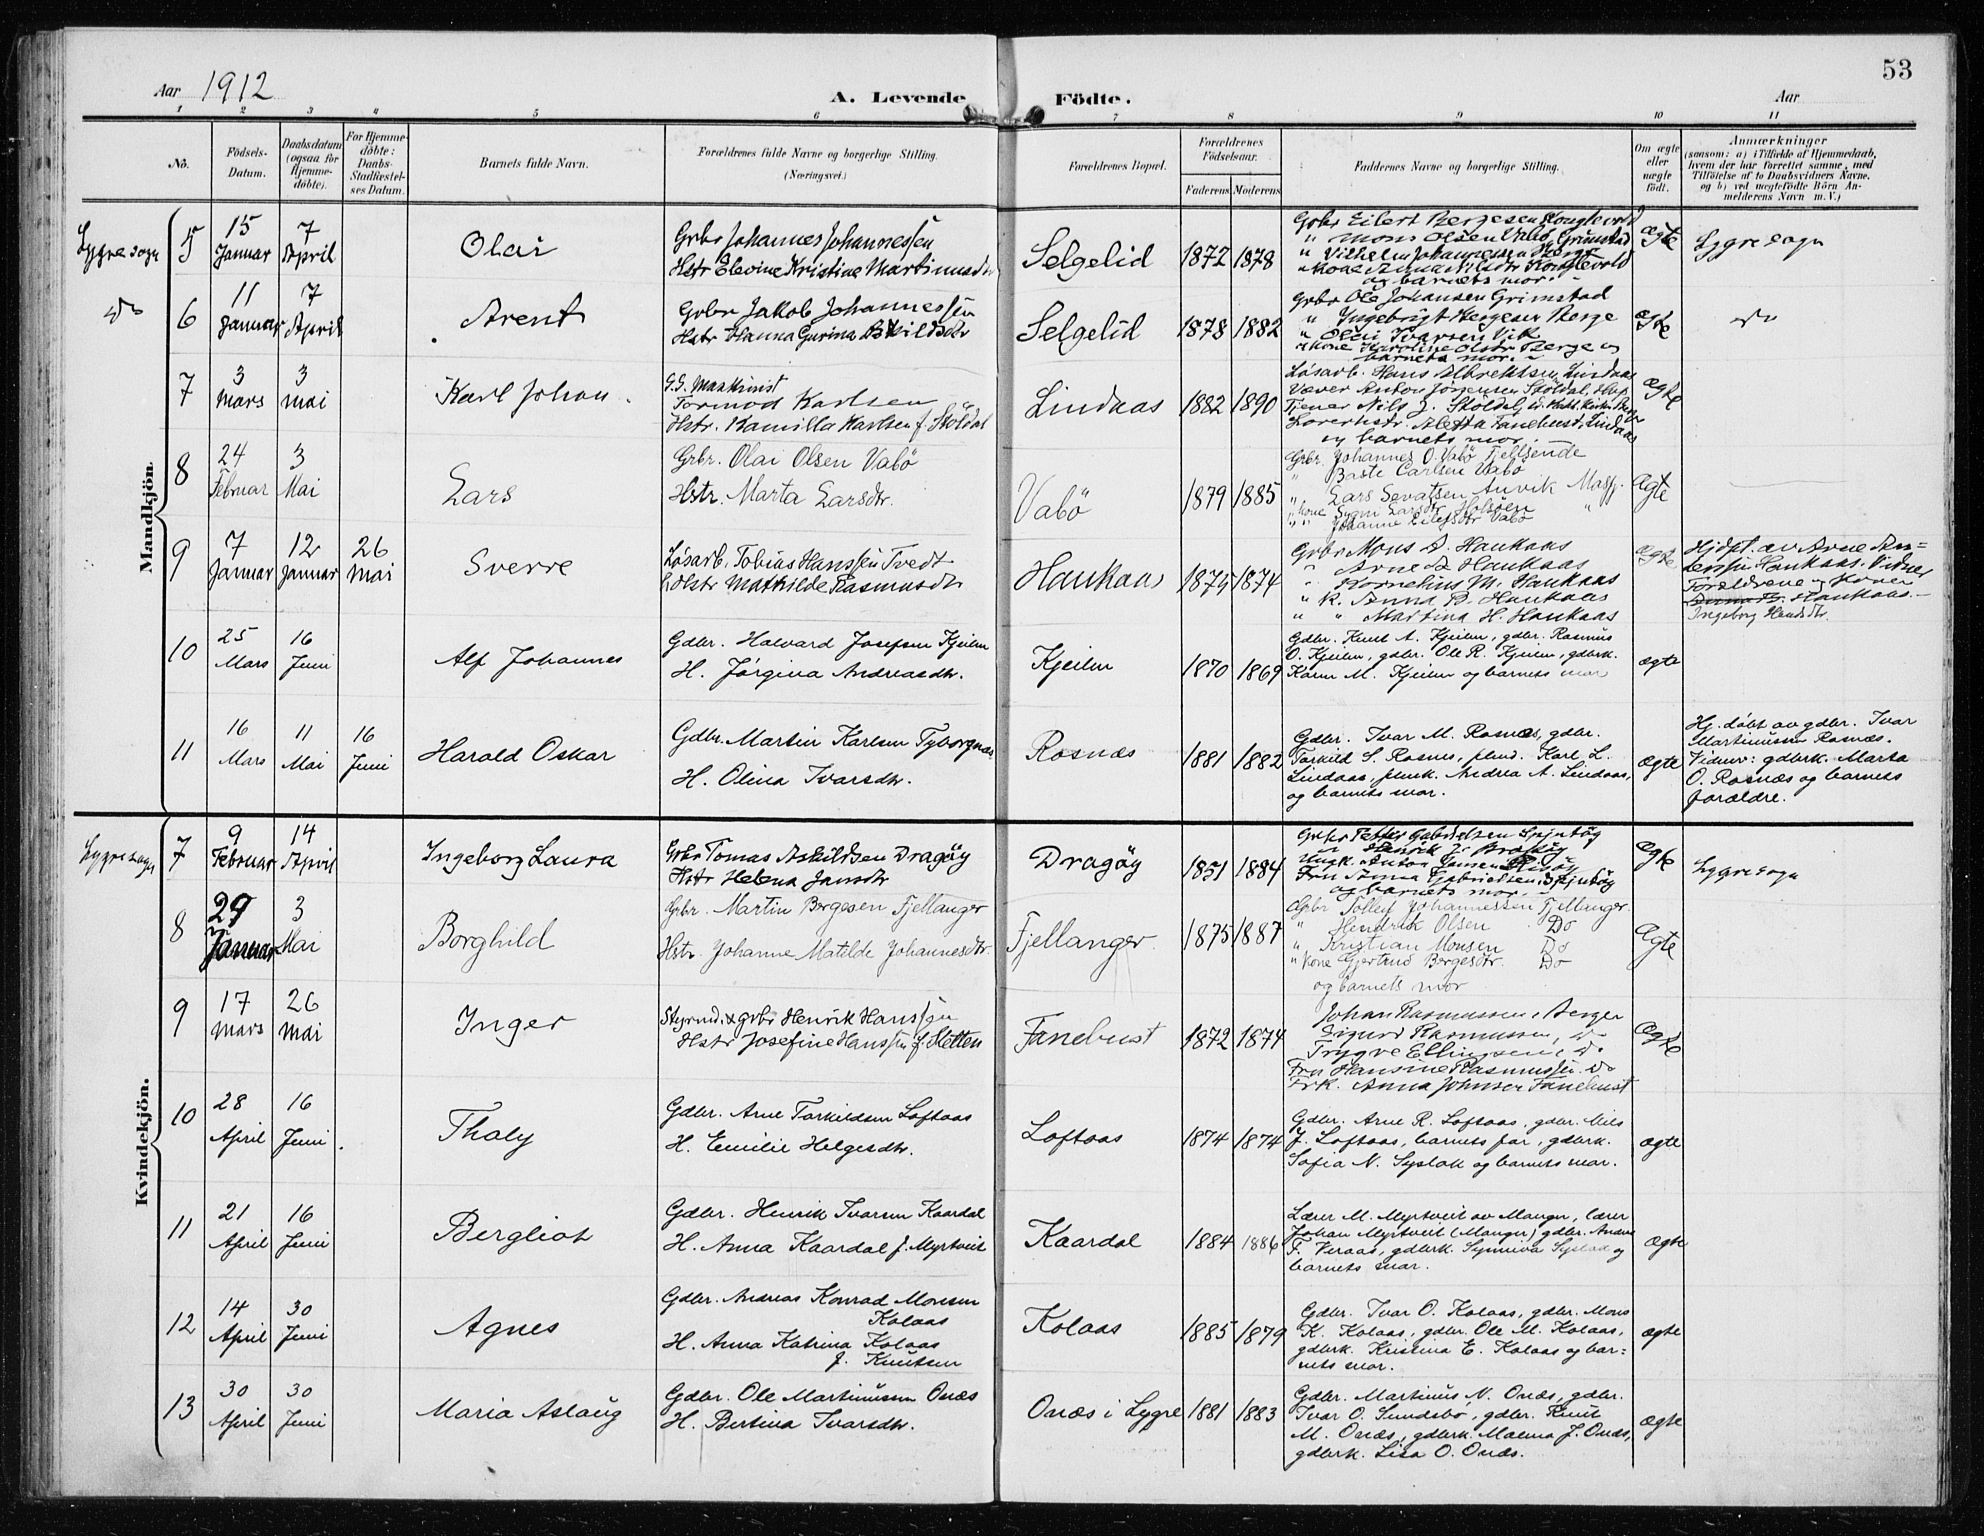 53
Aar 1912
A. Levende Födte.
Aar
1 2 3 4 5 6 7 8 9 10 11
No.
Födsels-Datum.
Daabsdatum (ogsaa for Hjemmedöbte).
For Hjemmedöbte: Daabs-Stadfæstelses Datum.
Barnets fulde Navn.
Forældrenes fulde Navne og borgerlige Stilling.
(Næringsvei.)
Forældrenes Bopæl.
Forældrenes Födselsaar.
Faderens Moderens
Faddernes Navne og borgerlige Stilling.
Om ægte eller uægte födt.
Anmærkninger
(saasom: a) i Tilfælde af Hjemmedaab,
hvem der har forrettet samme, med
Tilföielse af to Daabsvidners Navne,
og b) ved uægtefödte Börn An-
melderens Navn m. V.)
Mandkjön.
Lygre sogn
5
15 Januar
7 April
Olai
Grbr Johannes Johannessen
Hstr Elevine Kristine Martinusdtr
Selgelid
1872 1878
Grbr Eilert Bergesen Kongtevold
" Mons Olsen Vabö, Grimstad
" Vilhelm Johannessen Berge
" Kone Anna Nilsdtr Kongtevold
og barnets mor.
Ægte
Lygre sogn
do
6
11 Januar
7 April
Arent
Grbr Jakob Johannessen
Hstr Hanna Gurina Askildsdtr
Selgelid
1878 1882
Grbr Ole Johansen Grimstad
" Ingebrigt Bergesen Berge
" Olai Ivarsen Vik
" Kone Karoline Olsdtr Berge og
barnets mor.
Ægte
do
7
3 Mars
3 Mai
Karl Johan
Tormod Karlsen
Hstr. Kamilla Karlsen f. Stöldal
Lindaas
1882 1890
Løsarb. Hans Albrektsen, Lindaas
Væver Anton Jørgensen Stöldal,
Tjener Nils J. Stöldal,
Aletta Fanebust, Lindaas
og barnets mor.
Ægte
8
24 Februar
3 Mai
Lars
Grbr. Olai Olsen Vabö
Hstr. Marta Larsdtr.
Vabö
1879 1885
Grbr. Johannes O. Vabö Fjellsende
" Baste Carlsen Vabö
" Lars Sevatsen Anvik Masfj.
" Kone Sygni Larsdtr Holsöen "
" " Johanne Eilefsdtr Vabö
Ægte
9
7 Januar
12 Januar
26 Mai
Sverre
Løsarb. Tobias Hanssen Tvedt
Hstr Mathilde Rasmusdtr
Haukaas
1875 1874
Grbr Mons A. Haukaas
" Arne A Haukaas
" Kornelius M. Haukaas
" K. Anna B. Haukaas
" " Martina H. Haukaas
Ægte
Hjdpt. av Arne An-
derssen Haukaas. Vidner
Foreldrene og Konen
Haukaas.
Ingeborg Hansdtr.
10
25 Mars
16 Juni
Alf Johannes
Gdbr. Halvard Josefsen Kjeilen
H. Jörgina Andreasdtr.
Kjeilen
1870 1869
Gdbr. Knut A. Kjeilen, gdbr. Rasmus
O. Kjeilen, gdbr. Ole R. Kjeilen, gdbrk.
Karen M. Kjeilen og barnets mor
ægte
11
16 Mars
11 Mai
16 Juni
Harald Oskar
Gdbr. Martin Karlsen Tyborgnæs
H. Olina Ivarsdtr.
Rosnæs
1881 1882
Gdbr. Ivar M. Rosnæs, gdbr.
Torkild S. Rosnes, plmd. Karl L.
Lindaas, plmk. Andrea A. Lindaas,
og barnets mor.
ægte
Hj. döbt av gdbr. Ivar
Martinussen Rosnæs.
Vidner: gdbrk. Marta
O. Rosnæs og barnets
forældre.
Kvindekjön.
Lygre sogn
7
9 Februar
14 April
Ingeborg Laura
Grbr Tomas Askildsen Dragöy
Hstr Helena Jansdtr
Dragöy
1851 1884
Grbr Petter Gabrielsen Spjutöy
" Henrik J. Dragöy
Ungk. Anton Jansen
Fru Anna Gabrielsen, Spjutöy
og barnets mor.
Ægte
Lygre sogn
8
29 Januar
3 Mai
Borghild
Grbr. Martin Bergesen Fjellanger
Hstr. Johanne Matilde Johannesdtr.
Fjellanger
1875 1887
Grbr Tollef Johannessen Fjellanger.
" Hendrik Olsen Do
" Kristian Monsen Do
" Kone Gjertrud Bergesdtr. Do
og barnets mor
Ægte
9
17 Mars
26 Mai
Inger
Styrmd. & grbr Henrik Hanssen
Hstr Josefine Hanssen f. Hetten
Fanebust
1872 1874
Johan Rasmussen, Bergen
Sigurd Rasmussen, do
Trygve Ellingsen, do
Fru Hansine Rasmussen. do
Frk. Anna Johnsen Fanebust
Ægte
10
28 April
16 Juni
Thaly
Gdbr. Arne Torkildsen Loftaas
H. Emilie Helgesdtr.
Loftaas
1874 1874
Gdbr. Arne R. Loftaas, gdbr. Nils
J. Loftaas, barnets far, gdbrk.
Sofia N. Syslak og barnets mor.
ægte
11
21 April
16 Juni
Bergliot
Gdbr. Henrik Ivarsen Kaardal
H. Anna Kaardal f. Myrtveit
Kaardal
1884 1886
Lærer M. Myrtveit av Manger, lærer
Johan Myrtveit (Manger) gdbr. Andreas
F. Veraas, gdbrk. Synneva Syslak og
barnets mor.
ægte
12
14 April
30 Juni
Agnes
Gdbr. Andreas Konrad Monsen
Kolaas
H. Anna Katrina Kolaas
f. Knutsen
Kolaas
1885 1879
Gdbr. Ivar O. Kolaas, gdbr. Mons
K. Kolaas, gdbr. Ole M. Kolaas,
gdbrk. Kristina E. Kolaas og bar-
nets mor.
ægte
13
30 April
30 Juni
Maria Aslaug
Gdbr. Ole Martinussen Onæs
H. Bertina Ivarsdtr.
Onæs i Lygre
1881 1883
Gdbr. Martinus N. Onæs, gdbr.
Ivar O. Sundsbö, gdbr. Knut
M. Onæs, gdbrk. Malena J. Onæs,
gdbrk. Lisa O. Onæs.
ægte